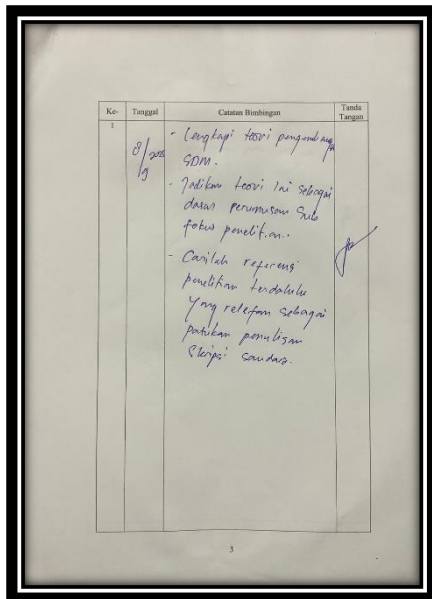 Ke-
Tanggal
Catatan Bimbingan
Tanda
Tangan
1
8/
9
- Lengkapi teori
SDM.
- Jadikan teori ini sebagai
dasar perumusan sub
fokus penelitian.
- Carilah referensi
penelitian terdahulu
yang relefan sebagai
patokan penulisan
Skripsi saudara.
3